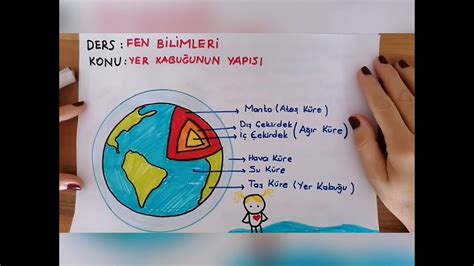 DERS : FEN BİLİMLERİ
KONU : YER KABUĞUNUN YAPISI
Manto (Ateş Küre)
Dış Çekirdek
İç Çekirdek (Ağır Küre)
Hava Küre
Su Küre
Taş Küre (Yer Kabuğu)